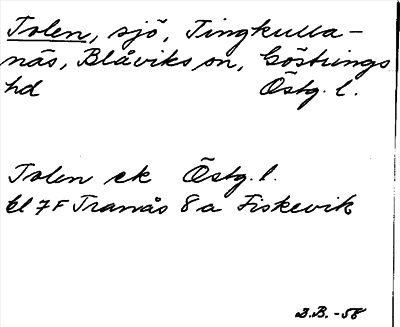 Tolen, sjö, Tingkulla-
näs, Blåviks sn, Göstrings
hd Östg. l.
Tolen ek Östg. l.
bl 7F Tranås 8a Fiskevik
B.B.-58